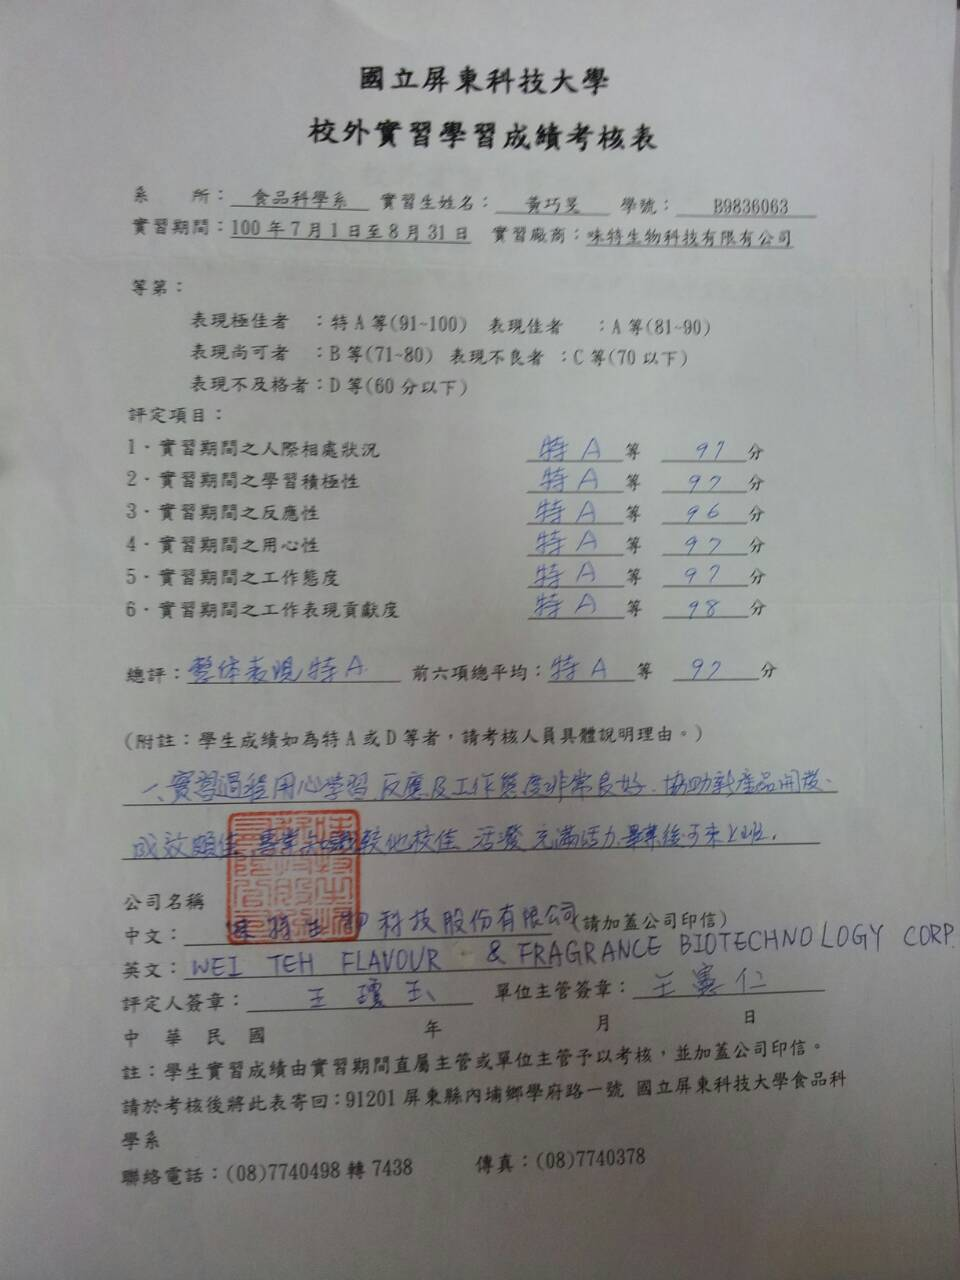 國立屏東科技大學
校外實習學習成績考核表
系 所： 食品科學系 實習生姓名： 黃巧旻 學號： B9836063
實習期間：100 年 7 月 1 日至 8 月 31 日 實習廠商：味特生物科技有限有公司
等第：
表現極佳者 ：特 A 等(91~100) 表現佳者 ：A 等(81~90)
表現尚可者 ：B 等(71~80) 表現不良者 ：C 等(70 以下)
表現不及格者：D 等(60 分以下)
評定項目：
1．實習期間之人際相處狀況 特 A 等 97 分
2．實習期間之學習積極性 特 A 等 97 分
3．實習期間之反應性 特 A 等 96 分
4．實習期間之用心性 特 A 等 97 分
5．實習期間之工作態度 特 A 等 97 分
6．實習期間之工作表現貢獻度 特 A 等 98 分
總評：整体表現特A 前六項總平均：特 A 等 97 分
(附註：學生成績如為特 A 或 D 等者，請考核人員具體說明理由。)
一、實習過程用心学習 反應及工作態度非常良好．協助新產品開發．
成效頗佳 專業知識較他校佳 活潑 充滿活力 畢業後可來上班．
公司名稱
中文： 味特生物科技股份有限公司 (請加蓋公司印信)
英文：WEI TEH FLAVOUR & FRAGRANCE BIOTECHNOLOGY CORP.
評定人簽章： 王瓊玉 單位主管簽章： 王憲仁
中 華 民 國 年 月 日
註：學生實習成績由實習期間直屬主管或單位主管予以考核，並加蓋公司印信。
請於考核後將此表寄回：91201 屏東縣內埔鄉學府路一號 國立屏東科技大學食品科
學系
聯絡電話：(08)7740498 轉 7438 傳真：(08)7740378